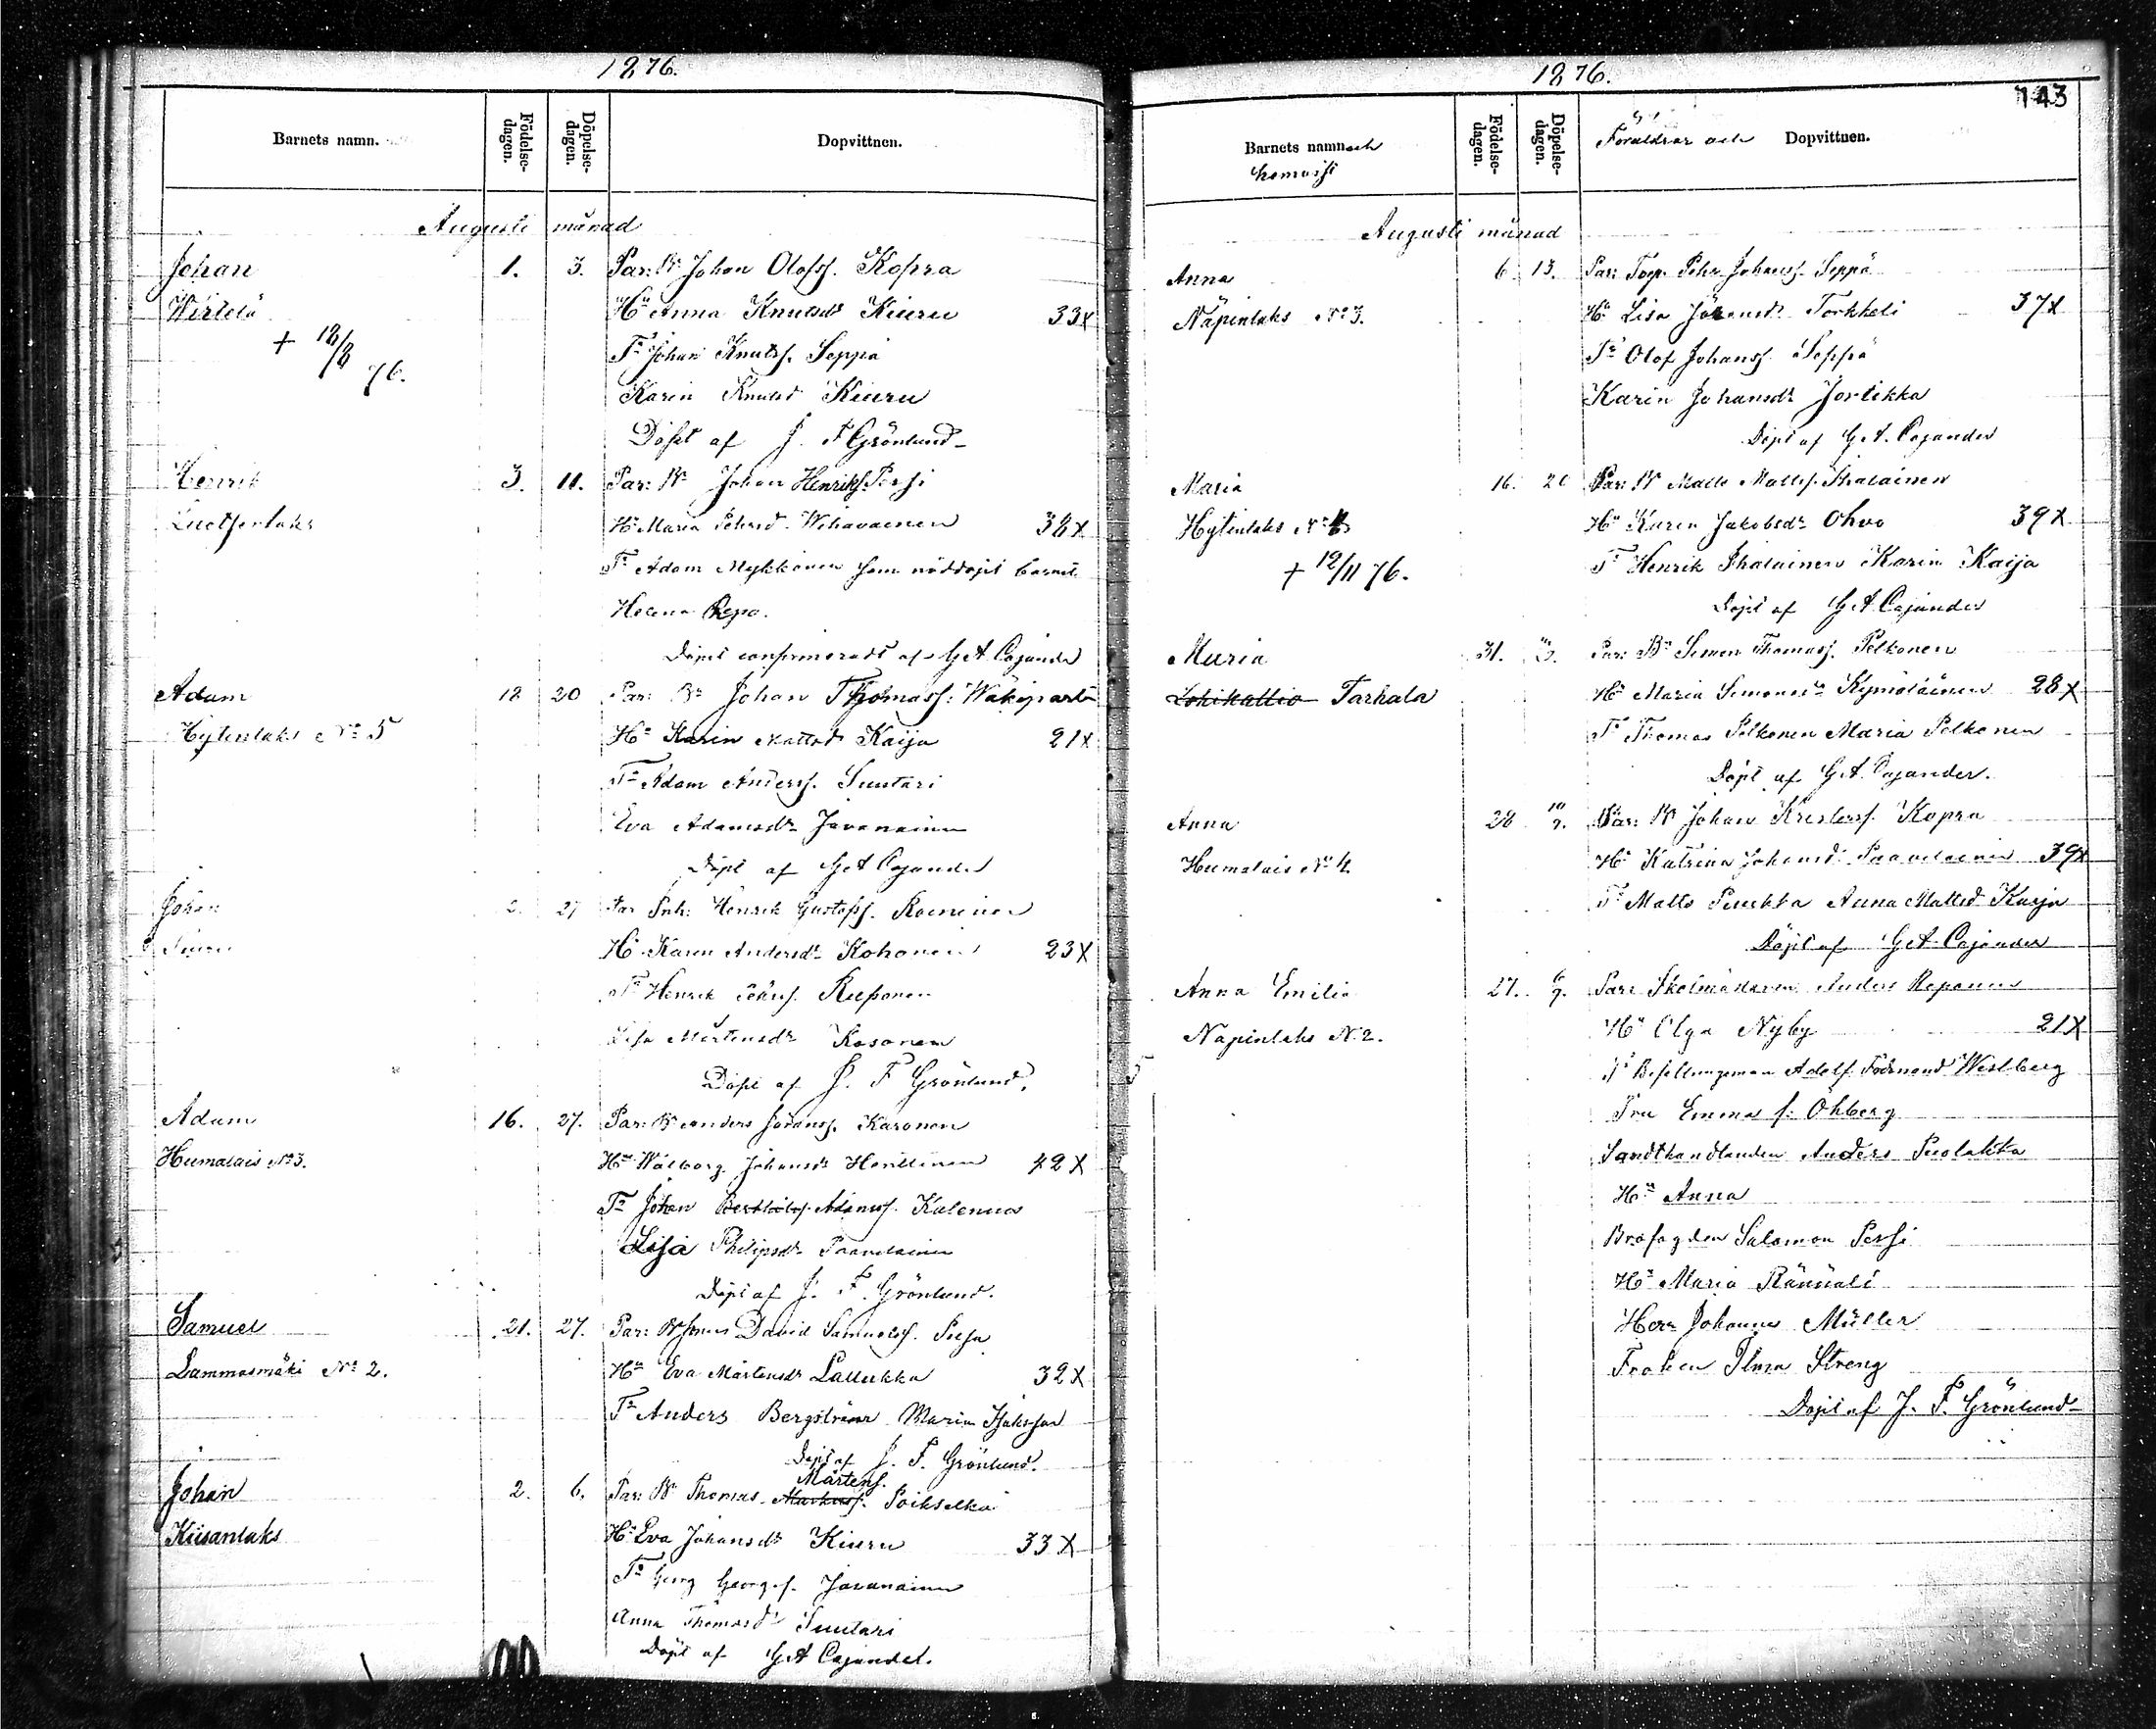 1876.
Barnets namn.
Födelse-dagen.
Döpelse-dagen.
Dopvittnen.
Augusti månad
Johan 1. 3. Par: Bn Johan Olofss. Kopra
Wirtelä Hu Anna Knutsdr Kiuru 33 X
+ 18/8 76. Fr Johan Knutss. Seppä
Karin Knutsd Kiuru
Döpt af J. F Grönlund
Henrik 3. 11. Par: Bn Johan Henrikss. Perssi
Hu Maria Pehrsd. Wihavainen 38 X
Fr Adam Mykkönen som nöddöpt barnet
Helena Repo.
Döpet confirmeradt af G A Cajander
Adam 12 20 Par: Bn Johan Thomass: Wäkiparta
Hytinlaks No 5 Hu Karin Mattsdr Kaija 21 X
Fr Adam Anderss. Suutari
Eva Adamsdr Javanainen
Döpt af G A Cajander
Johan 27 Par Inh: Henrik Gustafss. Roininen
Hu Karin Andersdr Kohonen 23 X
Fr Henrik Pehrss. Ruponen
Lisa Mårtensdr Kosonen
Döpt af J. F Grönlund.
Adam 16. 27. Par: Bn Anders Göranss. Karonen
Humalais No 3. Hu Walborg Johansdr Henttinen 42 X
Fr Johan Adamss.
Lisa Philipsdr Paavilainen
Döpt af J. F. Grönlund.
Samuel 21. 27. Par: David Samuelss. Susa
Lammasmäki No 2. Hu Eva Mårtensdr Lallukka 32 X
Fr Anders Bergström Maria
Döpt af J. F. Grönlund.
Mårtens.
Johan 2. 6. Par: Bn Thomas Markuss. Poikselkä
Kiisanlaks Hu Eva Johansdr Kiuru 33 X
Fr Georg Georgs. Javanainen
Anna Thomasdr Suutari
Döpt af G A Cajander.
1876.
143
Barnets namn och hemvist
Födelse-dagen.
Döpelse-dagen.
Föräldrar och Dopvittnen.
Augusti månad
Anna 6. 13. Par: Torp. Pehr Johanss. Seppä
Näpinlaks No 3. Hu Lisa Göransdr Torkkeli 37 X
Fr Olof Johanss. Seppä
Karin Johansdr Jortikka
Döpt af G A. Cajander
Maria 16. 20 Par: Bn Matts Mattss. Ihalainen
Hytinlaks No Hu Karin Jakobsdr Ohvo 39 X
+ 12/11 76. Fr Henrik Ihalainen Karin Kaija
Döpt af G A Cajander
Maria 31. 3. Par: Bn Simon Thomass. Pelkonen
Lohikallio Tarhala Hu Maria Simonsdr Kymäläinen 28 X
Fr Thomas Pelkonen Maria Pelkonen
Döpt af G A. Cajander.
Anna 28 10/9. Par: Bn Johan Kristerss. Kopra
Humalais No 4. Hu Katrina Johansd. Paavilainen 39 X
Fr Matts Puukka Anna Mattsd Karja
Döpt af G A Cajander
Anna Emilia 27. 6/9. Par: Skolmästaren Anders Reponen
Näpinlaks N 2. Hu Olga Nyby 21 X
Fr Befallningsman Adolf Ferdinand Westberg
Fru Emma f: Öhberg
Landthandlanden Anders Puolakka
Hu Anna
Brofogden Salomon Perssi
Hu Maria Rännäli
Herr Johannes Müller
Fröken Ilma Streng
Döpt af J. F. Grönlund